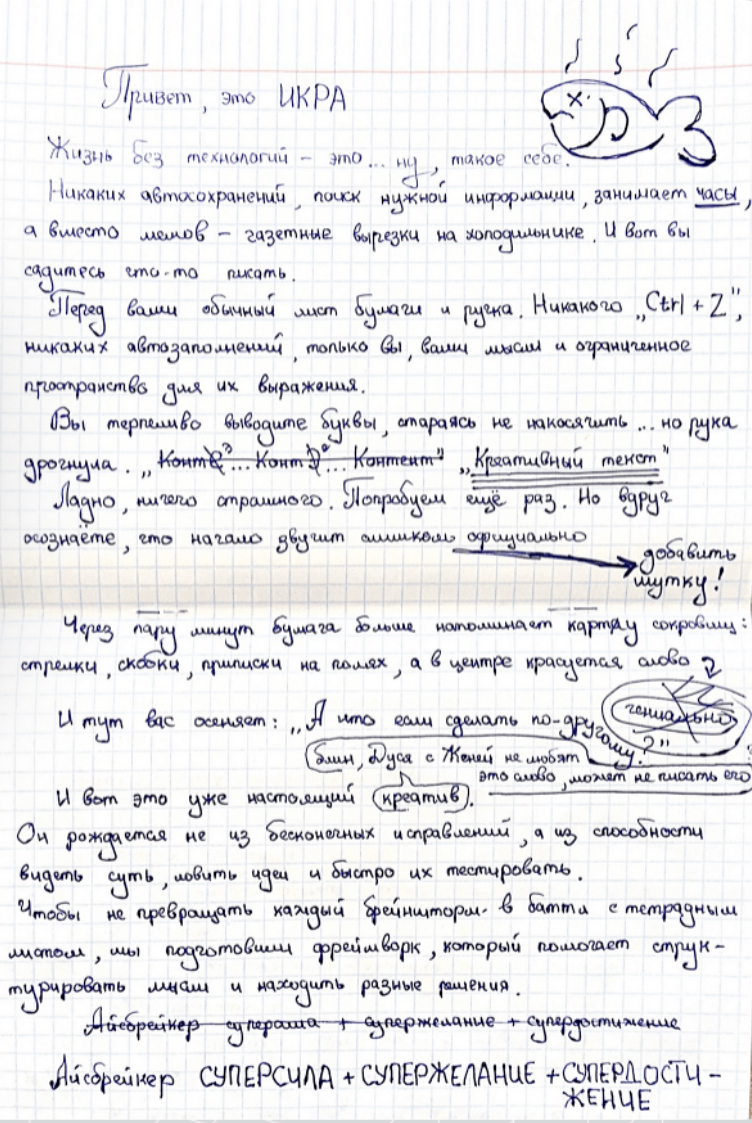 Привет, это ИКРА
Жизнь без технологий – это... ну, такое себе.
Никаких автосохранений, поиск нужной информации, занимает часы,
а вместо мемов – газетные вырезки на холодильнике. И вот вы
садитесь что-то писать.
Перед вами обычный лист бумаги и ручка. Никакого „Ctrl + Z",
никаких автозаполнений, только вы, ваши мысли и ограниченное
пространство для их выражения.
Вы терпеливо выводите буквы, стараясь не накосячить ... но рука
дрогнула. „Конте... Конт... Контент" „Креативный текст"
Ладно, ничего страшного. Попробуем ещё раз. Но вдруг
осознаёте, что начало звучит слишком официально
добавить
шутку!
Через пару минут бумага больше напоминает карту сокровищ:
стрелки, скобки, приписки на полях, а в центре красуется слово
гениально
И тут вас осеняет: „А что если сделать по-другому?"
блин, Дуся с Женей не любят
это слово, может не писать его
И вот это уже настоящий креатив.
Он рождается не из бесконечных исправлений, а из способности
видеть суть, ловить идеи и быстро их тестировать.
Чтобы не превращать каждый брейншторм в баттл с тетрадным
листом, мы подготовили фреймворк, который помогает струк-
турировать мысли и находить разные решения.
Айсбрейкер суперсила + супержелание + супердостижение
Айсбрейкер СУПЕРСИЛА + СУПЕРЖЕЛАНИЕ + СУПЕРДОСТИ-
ЖЕНИЕ